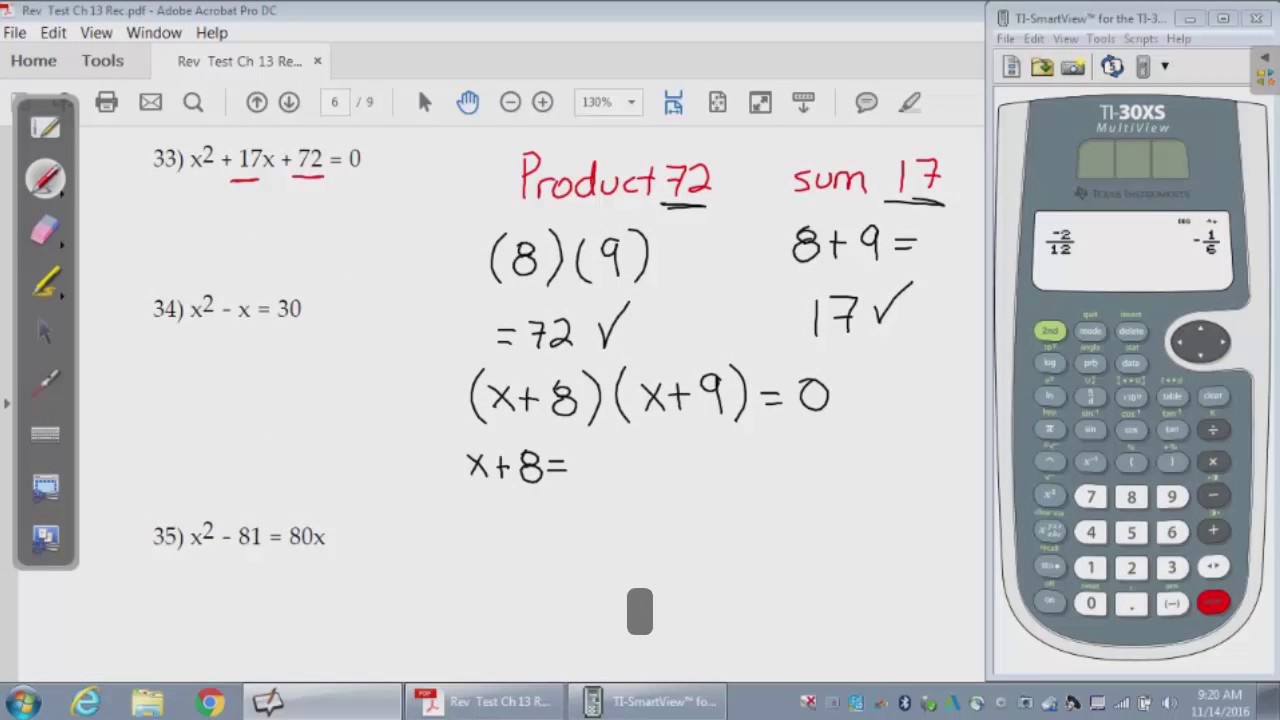 Rev Test Ch 13 Rec.pdf - Adobe Acrobat Pro DC
File Edit View Window Help
Home Tools Rev Test Ch 13 Re... ×
6 / 9 130%
33) x² + 17x + 72 = 0
Product 72 sum 17
(8)(9) 8+9=
= 72 ✓ 17 ✓
34) x² - x = 30
(x+8)(x+9) = 0
x+8=
35) x² - 81 = 80x
TI-SmartView™ for the TI-3...
File Edit View Tools Scripts Help
TI-30XS
MultiView
TEXAS INSTRUMENTS
-2/12 -1/6
quit insert
2nd mode delete
angle stat
log prb data
ln table clear
π sin cos tan ÷
^ x⁻¹ ( ) ×
x² 7 8 9 −
4 5 6 +
recall
1 2 3
off
on 0 . (−)
Rev Test Ch 13 R... TI-SmartView™ for...
9:20 AM
11/14/2016